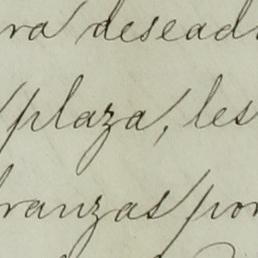 ra desead
plaza, les
ranzas por